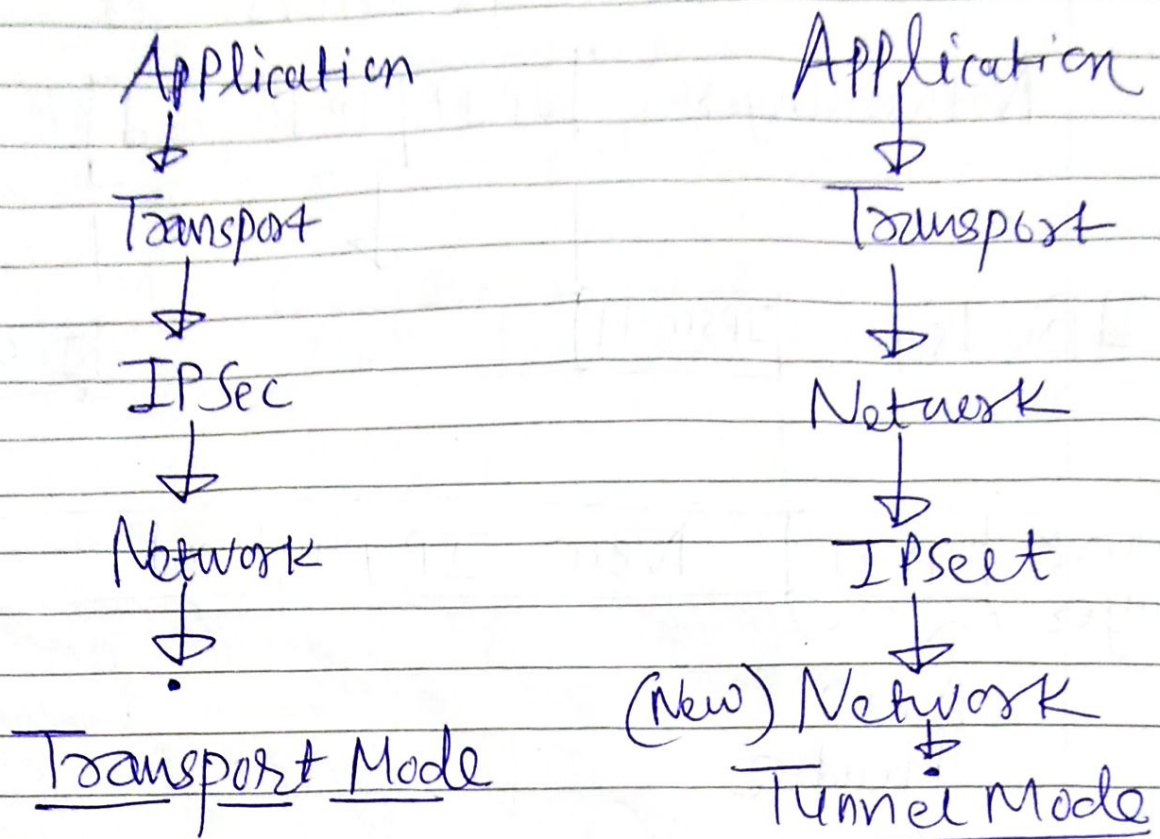 Application
Transport
IPSec
Network
Transport Mode
Application
Transport
Network
IPSect
(New) Network
Tunnel Mode